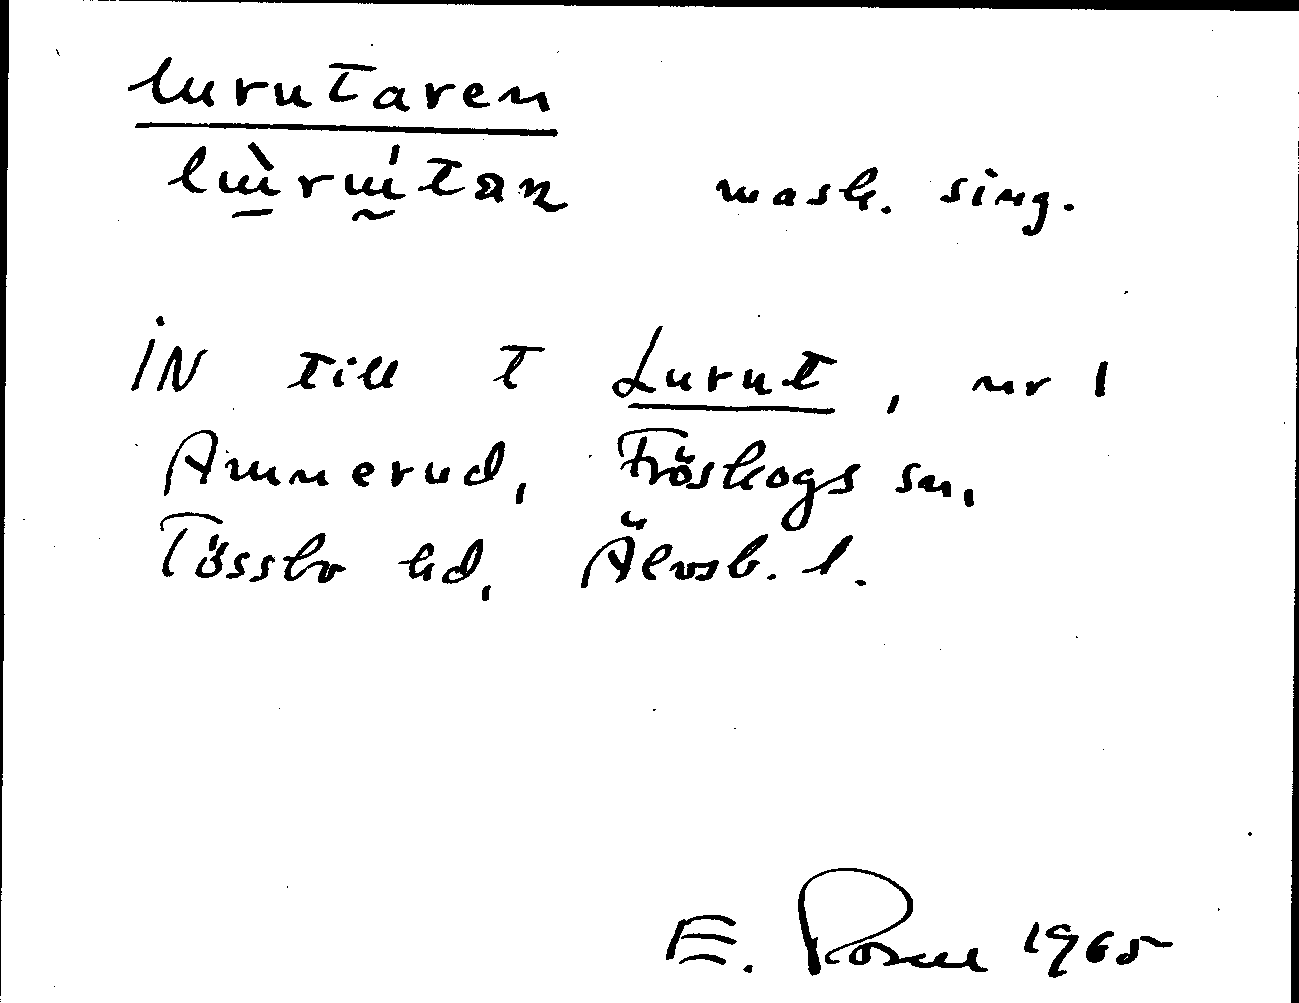 lurutaren
lùrútan mask. sing.
IN till T Lurut, nr 1
Ammerud, Fröskogs sn,
Tössbo hd, Älvsb. l.
E. Rosen 1965